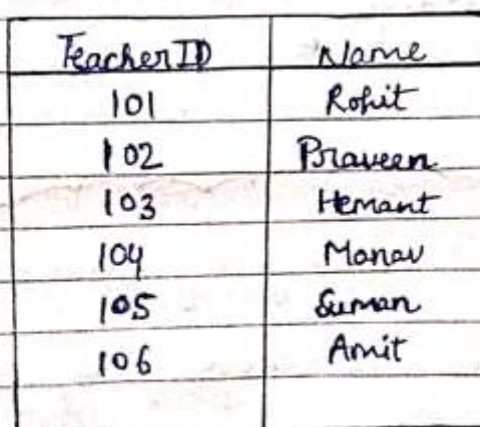 TeacherID Name
101 Rohit
102 Praveen
103 Hemant
104 Manav
105 Suman
106 Amit